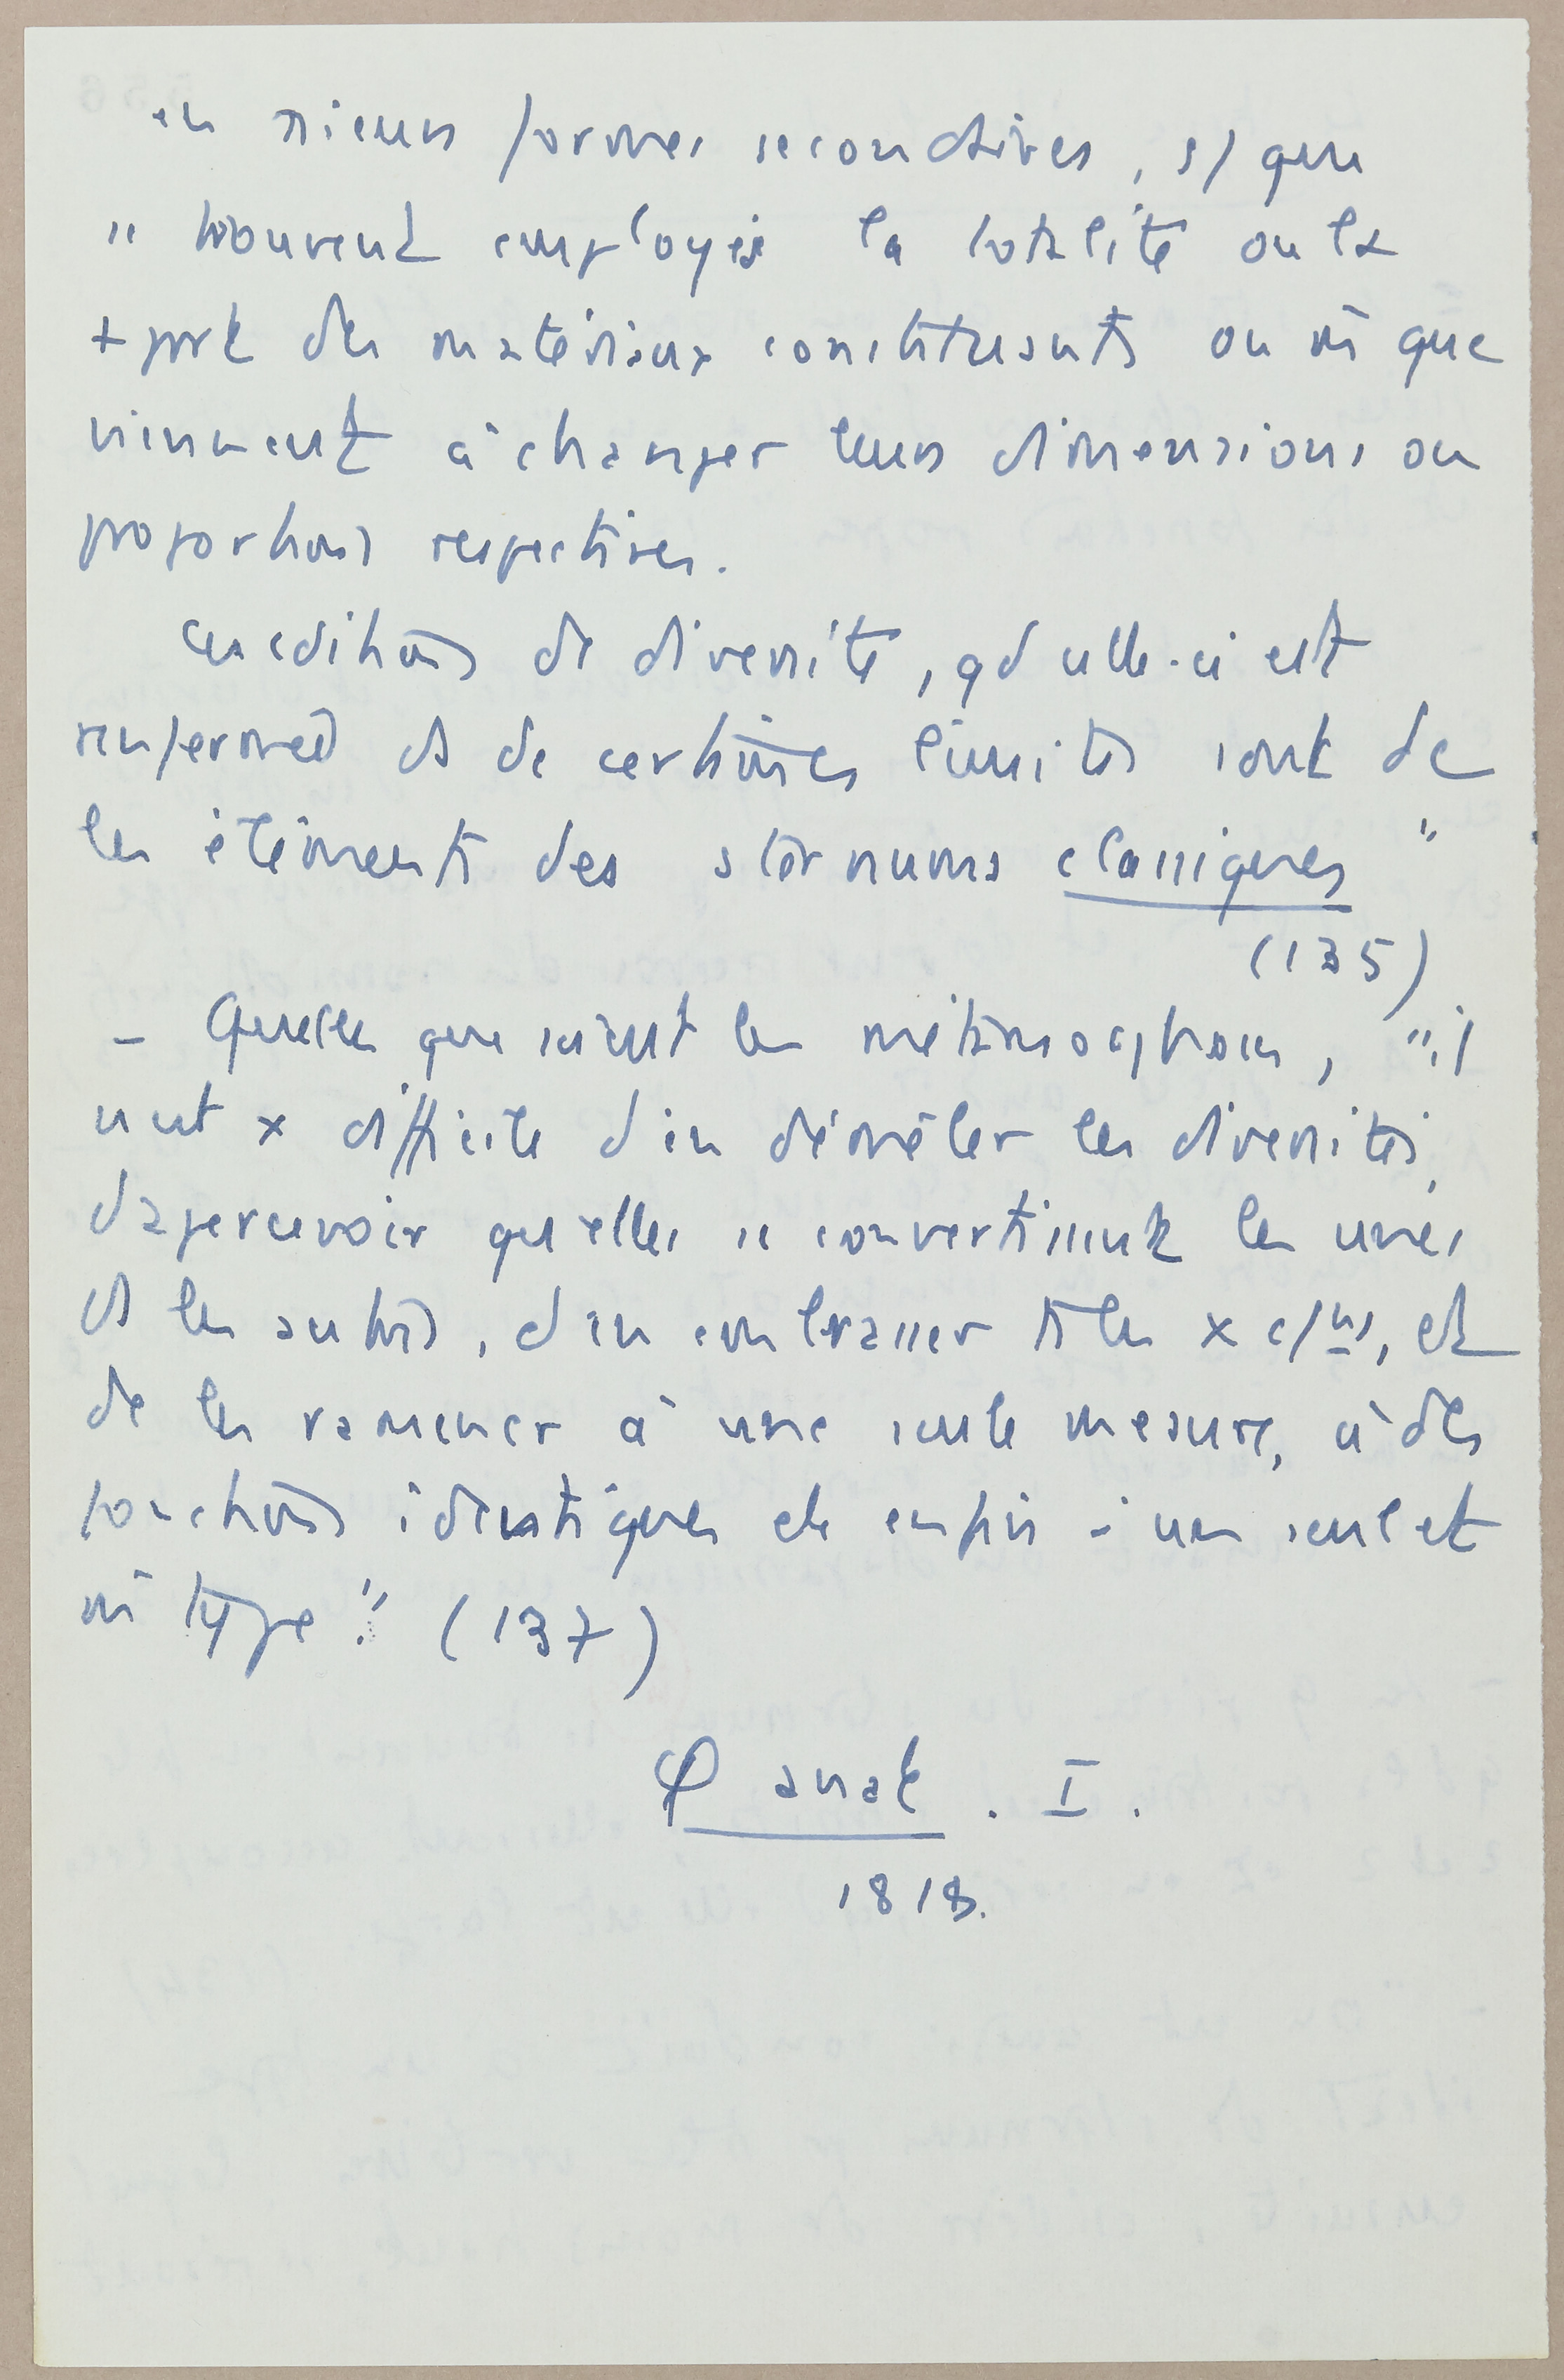 en sieurs formes secondaires, s/ que
se trouvent employés la totalité ou la
+ part des matériaux constituants ou m̄ que
viennent à changer leurs dimensions ou
proportions respectives.
Ces cditions de diversité, qd celle-ci est
renfermée ds de certaines limites sont de
les éléments des sternums classiques "
(135)
- Quelles que soient les métamorphoses, "il
n'est x difficile d'en démêler les diversités,
d'apercevoir qu'elles se convertissent les unes
ds les autres, d'en embrasser ttes les x c/ns, et
de les ramener à une seule mesure, à des
fonctions identiques et enfin à un seul et
m̄ type." (137)
φ anat. I.
1818.